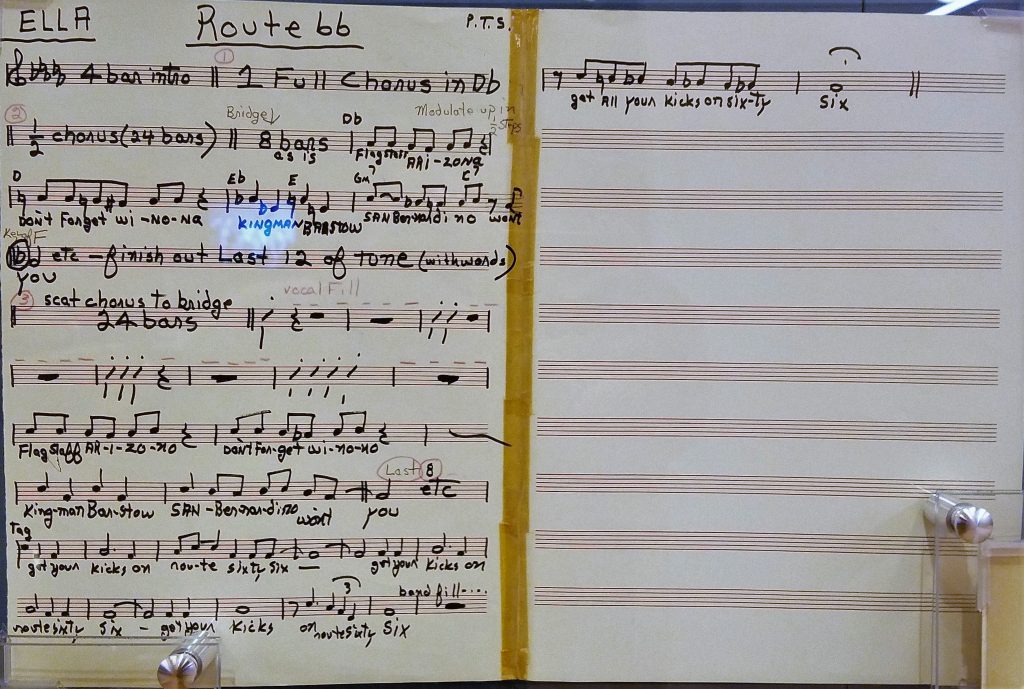 ELLA Route 66 P.T.S.
4 bar intro ① 1 Full Chorus in Db
② 1/2 chorus (24 bars) Bridge↓ 8 bars as is Db Modulate up in 1/2 steps
Flagstaff ARi-zona
D Eb E Gm7 C7
Don't Forget wi-No-Na KINGMAN BARSTOW SAN Bernardino wont
Key of F
you etc - finish out Last 12 of tune (with words)
③ scat chorus to bridge vocal Fill
24 bars
Flagstaff AR-i-zo-no Don't For-get wi-no-no
Last 8
King-man Bar-stow SAN-Bernardino won't you etc
Tag
get your kicks on rou-te sixty six — get your kicks on
band fill....
3
route sixty six - get your kicks on route sixty six
get All your kicks on six-ty six